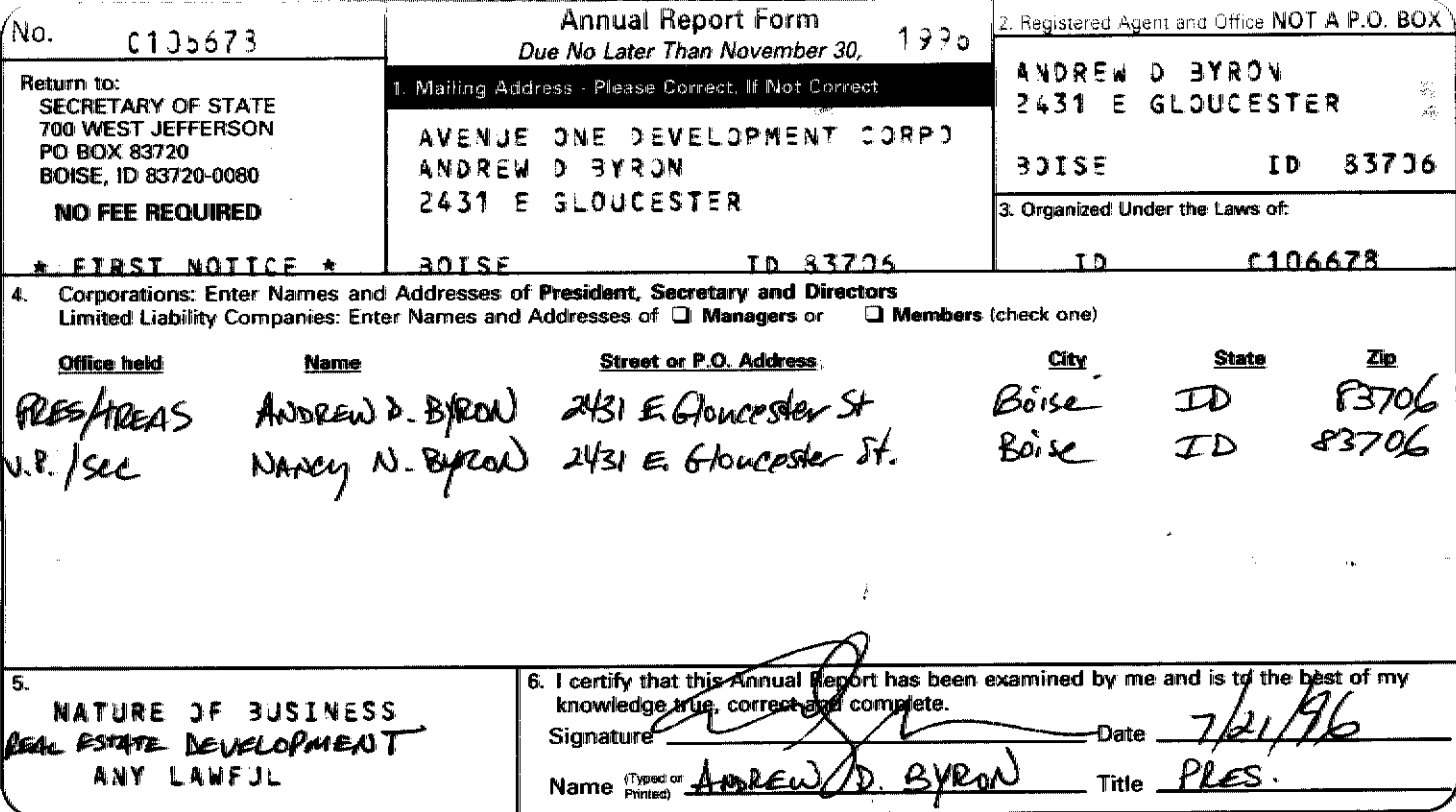 No. C106678
Annual Report Form
Due No Later Than November 30, 1996
2. Registered Agent and Office NOT A P.O. BOX
Return to:
SECRETARY OF STATE
700 WEST JEFFERSON
PO BOX 83720
BOISE, ID 83720-0080
NO FEE REQUIRED
* FIRST NOTICE *
1. Mailing Address - Please Correct, If Not Correct
AVENUE ONE DEVELOPMENT CORPO
ANDREW D BYRON
2431 E GLOUCESTER
BOISE ID 83706
ANDREW D BYRON
2431 E GLOUCESTER
BOISE ID 83706
3. Organized Under the Laws of:
ID C106678
4. Corporations: Enter Names and Addresses of President, Secretary and Directors
Limited Liability Companies: Enter Names and Addresses of ☐ Managers or ☐ Members (check one)
Office held Name Street or P.O. Address City State Zip
PRES/TREAS ANDREW D. BYRON 2431 E. Gloucester St Boise ID 83706
V.P./Sec NANCY N. BYRON 2431 E. Gloucester St. Boise ID 83706
5.
NATURE OF BUSINESS
REAL ESTATE DEVELOPMENT
ANY LAWFUL
6. I certify that this Annual Report has been examined by me and is to the best of my
knowledge true, correct and complete.
Signature Date 7/21/96
Name (Typed or Printed) ANDREW D. BYRON Title PRES.